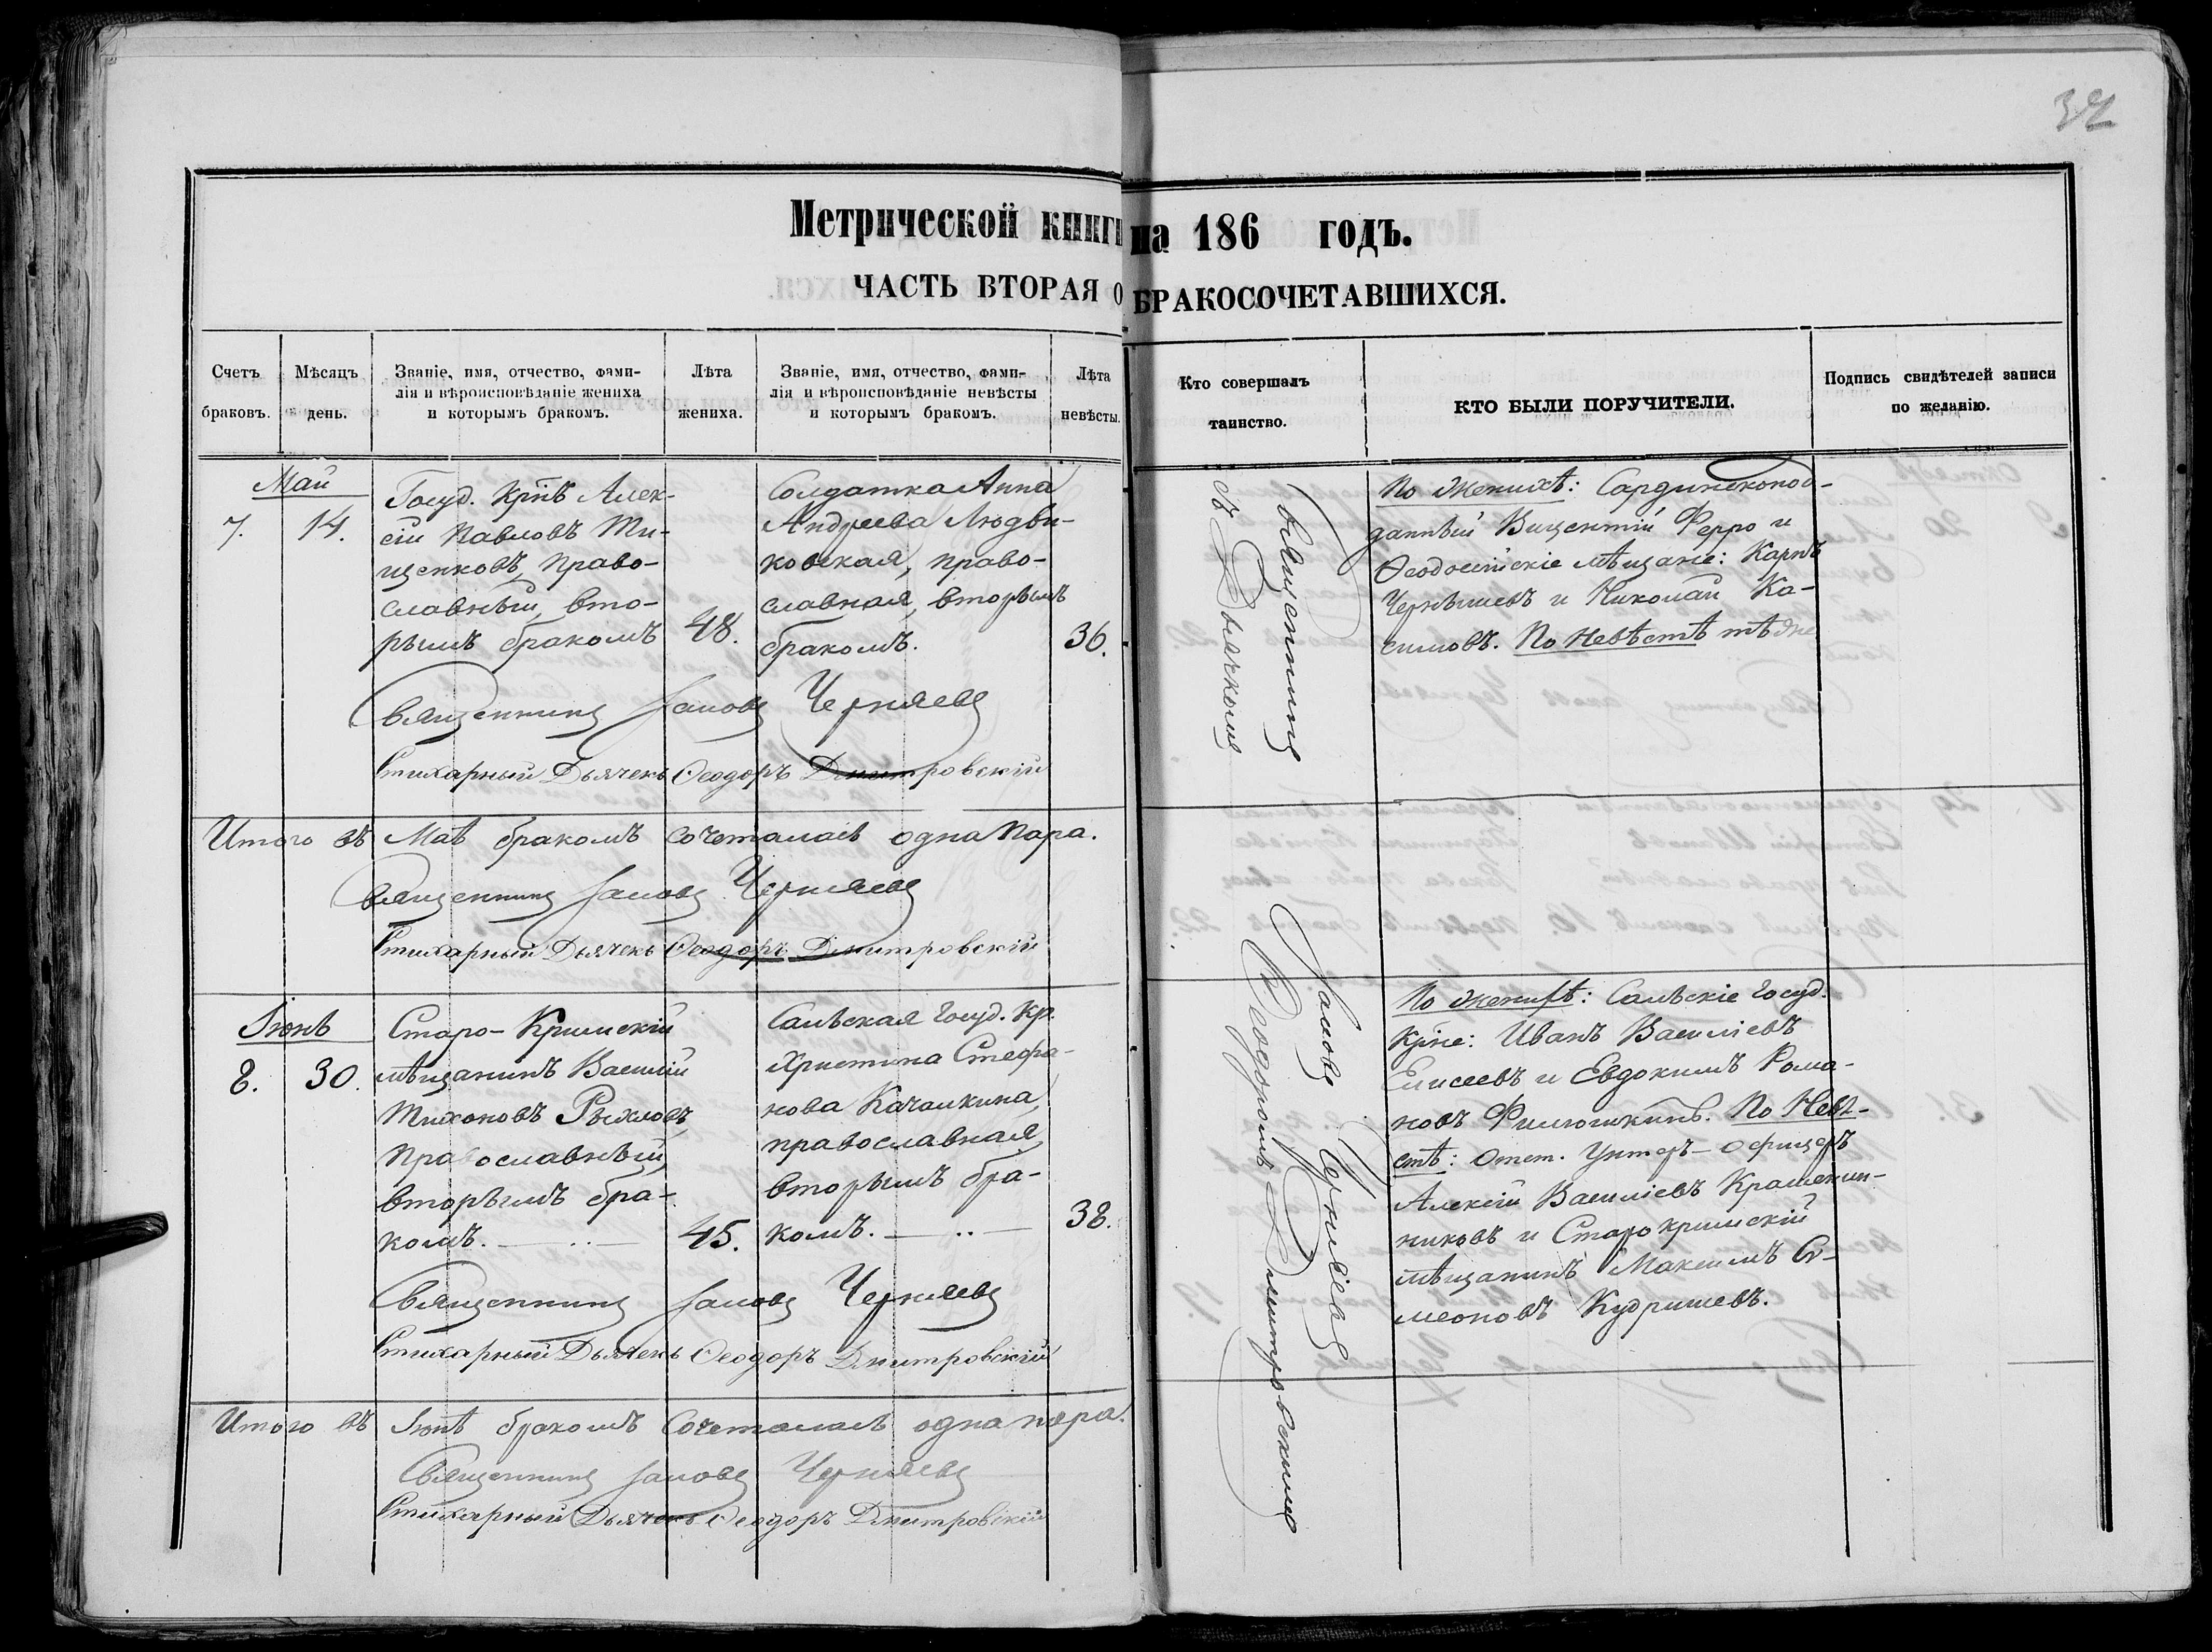 32
Метрической книги на 186 годъ.
ЧАСТЬ ВТОРАЯ О БРАКОСОЧЕТАВШИХСЯ.
Счетъ браковъ.
Мѣсяцъ день.
Званіе, имя, отчество, фами-
лія и вѣроисповѣданіе жениха
и которымъ бракомъ.
Лѣта
жениха.
Званіе, имя, отчество, фами-
лія и вѣроисповѣданіе невѣсты
и которымъ бракомъ.
Лѣта
невѣсты.
Кто совершалъ
таинство.
КТО БЫЛИ ПОРУЧИТЕЛИ.
Подпись свидѣтелей записи
по желанію.
Май
7.
14.
Госуд. Крнъ Алек-
сій Павловъ Ти-
щенковъ, право-
славный, вто-
рымъ бракомъ
48.
Солдатка Анна
Андреева Людви-
ковская, право-
славная, вторымъ
бракомъ.
36.
Священникъ Іаковъ Черняевъ
Стихарный Дьячекъ Ѳеодоръ Дмитровскій
По Женихѣ: Сардинскопод-
данный Вицентій Ферро и
Ѳеодосійскіе мѣщане: Карпъ
Чернышевъ и Николай Ка-
симовъ. По Невѣстѣ тѣ же
Итого въ Маѣ бракомъ сочеталась одна пара.
Священникъ Іаковъ Черняевъ
Стихарный Дьячекъ Ѳеодоръ Дмитровскій
Іюнь
8.
30.
Старо-Крымскій
мѣщанинъ Василій
Тихоновъ Рыхловъ,
Православный,
вторымъ бра-
комъ.
45.
Сальская Госуд. Кр.
Христина Стефа-
нова Качалкина,
православная,
вторымъ бра-
комъ.
38.
Священникъ Іаковъ Черняевъ
Стихарный Дьячекъ Ѳеодоръ Дмитровскій
По Женихѣ: Сальскіе Госуд.
Крне: Иванъ Василіевъ
Елисеевъ и Евдокимъ Рома-
новъ Филюшкинъ. По Невѣ-
стѣ: Отст. Унтеръ-офицеръ
Алексій Василіевъ Крашенин-
никовъ и Старокрымскій
мѣщанинъ Максимъ Си-
меоновъ Кудришевъ.
Священникъ Іаковъ Черняевъ
съ Дьячкомъ Ѳеодоромъ Дмитровскимъ
Итого въ Іюнѣ бракомъ сочеталась одна пара.
Священникъ Іаковъ Черняевъ
Стихарный Дьячекъ Ѳеодоръ Дмитровскій